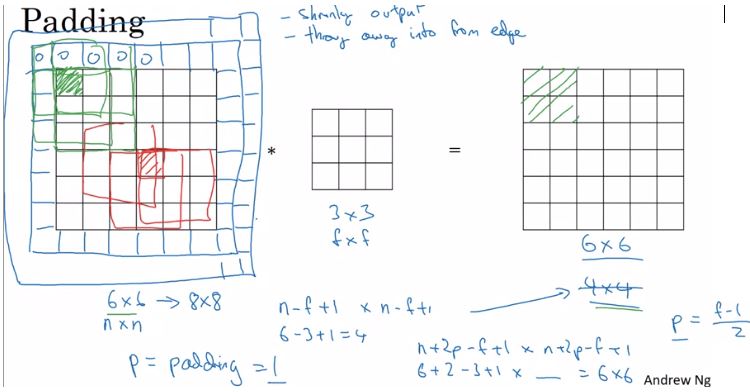 Padding
- shrinky output
- throw away info from edge
0 0 0 0 0
*
=
3 × 3
f × f
6 × 6
4 × 4
6 × 6 → 8 × 8
n × n
n-f+1 × n-f+1
6-3+1=4
p = padding = 1
n+2p-f+1 × n+2p-f+1
6+2-3+1 × __ = 6×6
p = f-1
2
Andrew Ng